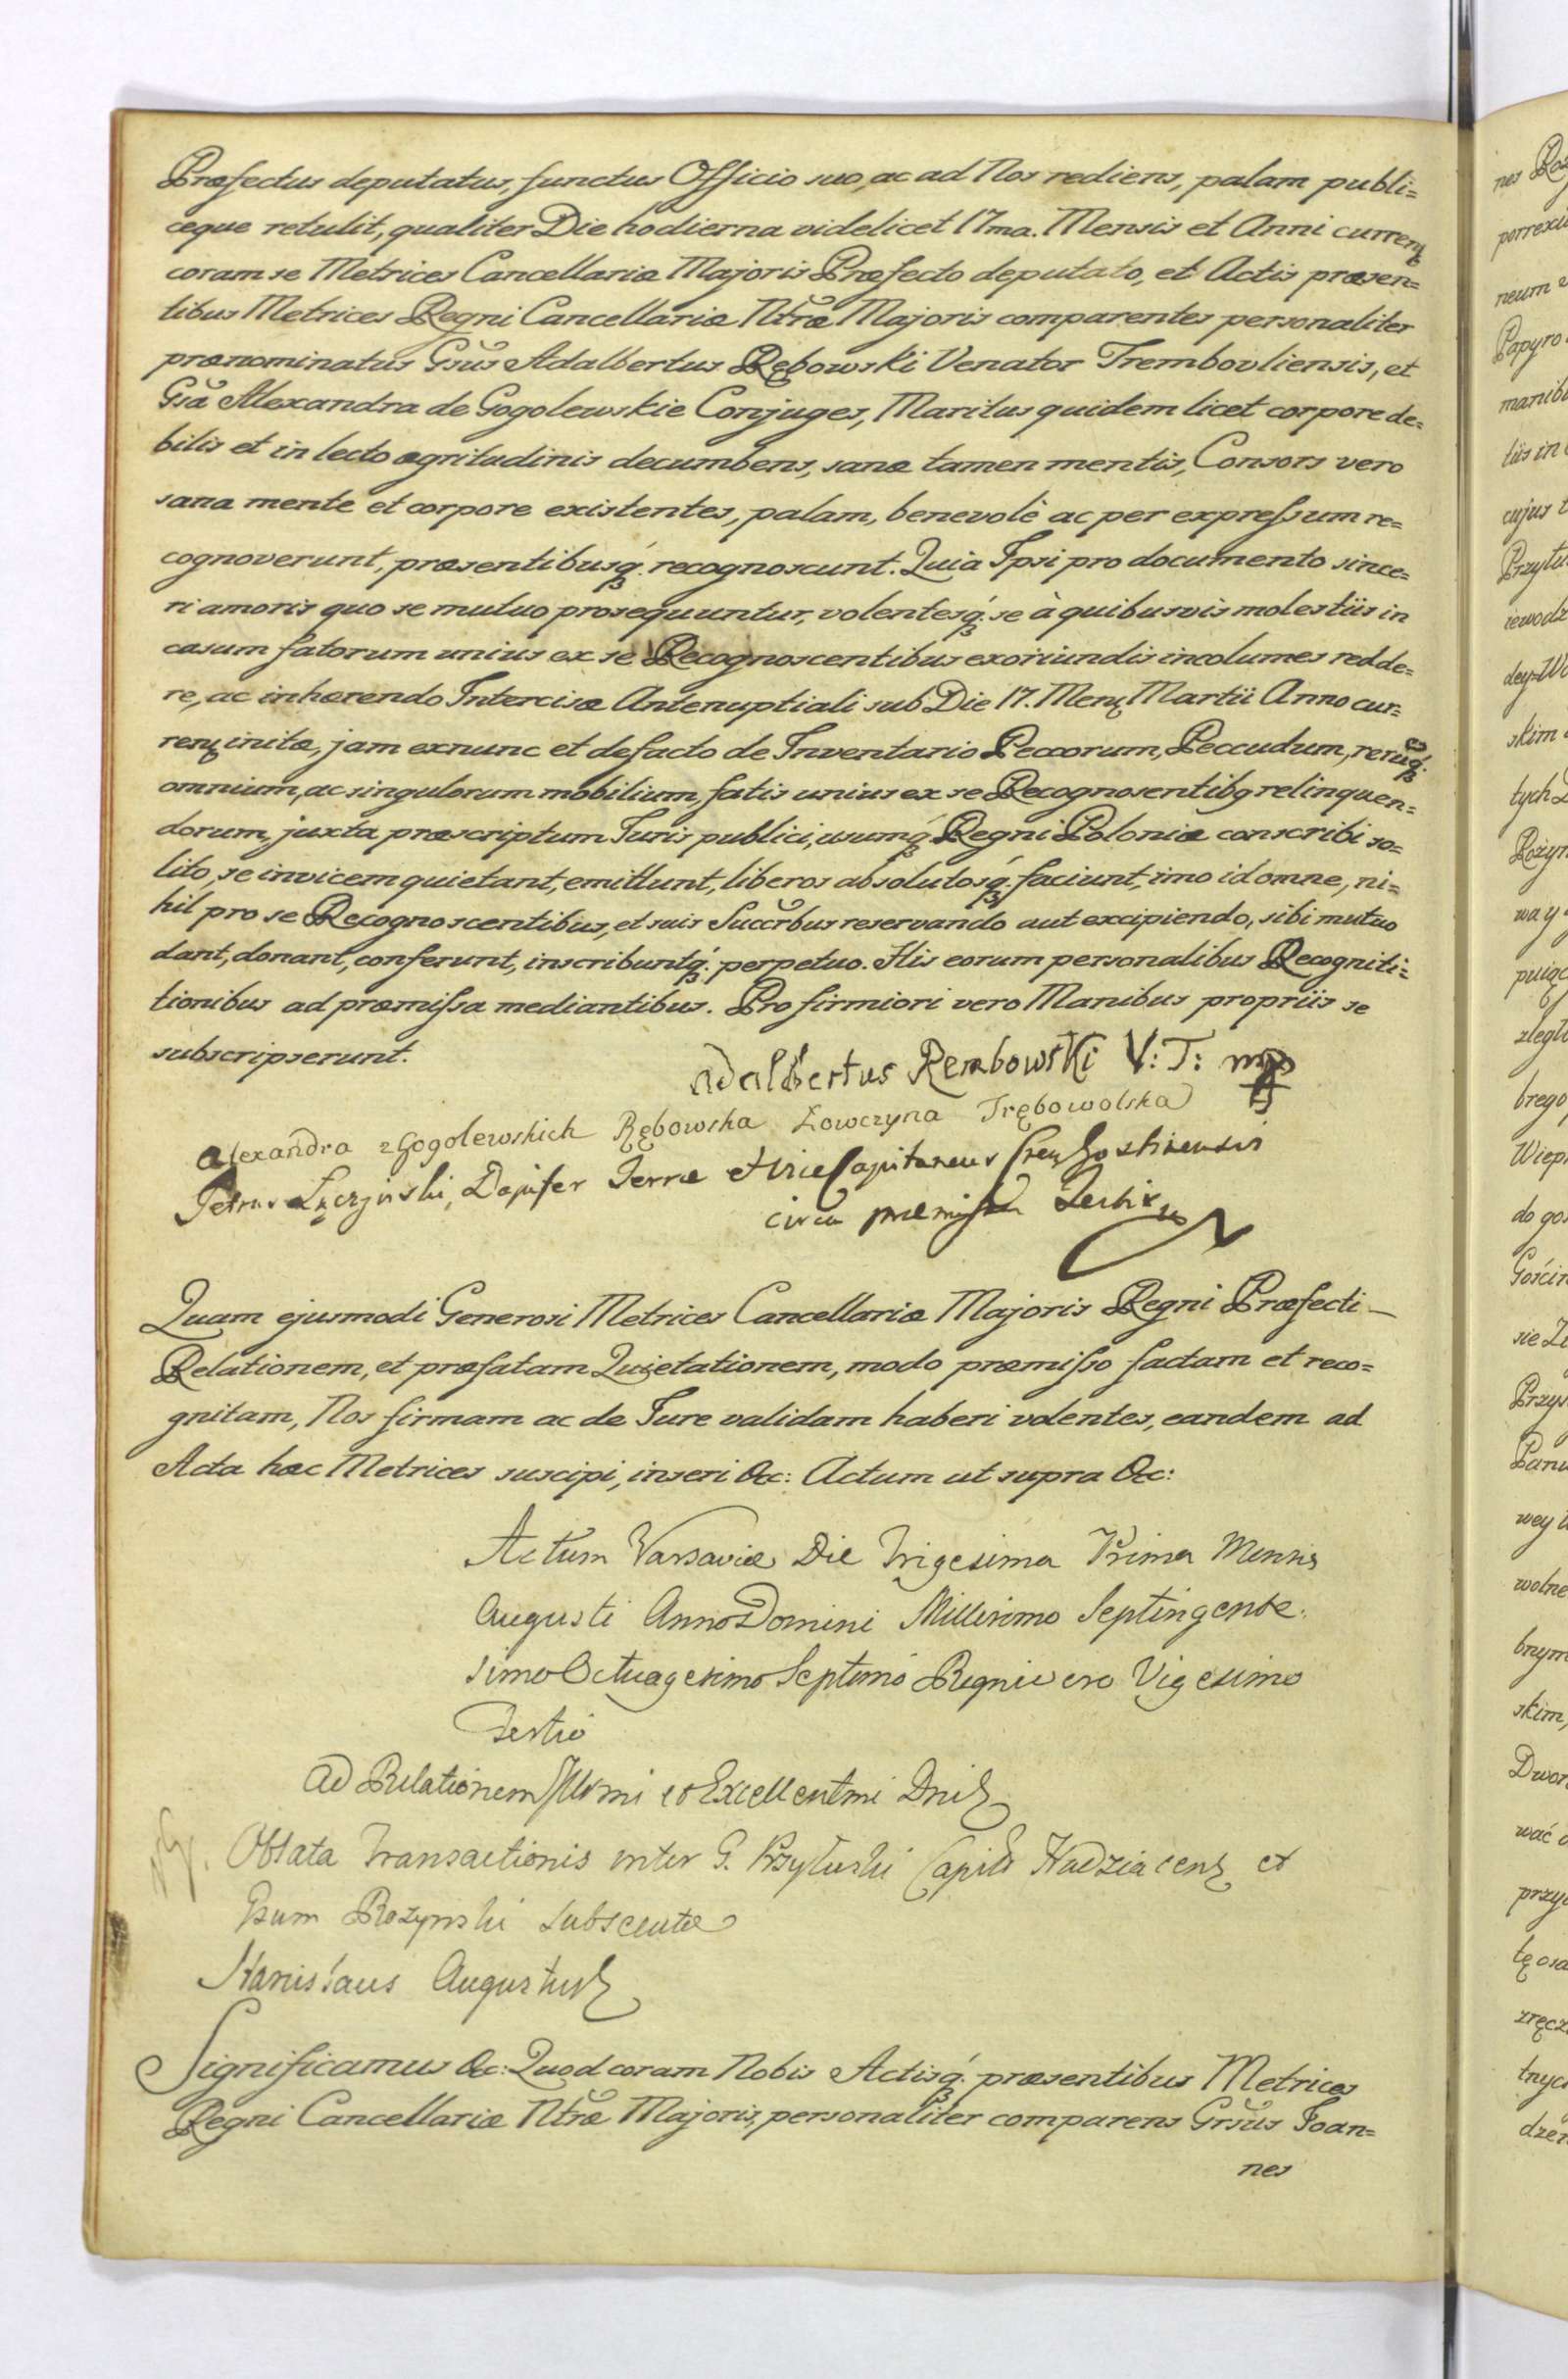 Præfectus deputatus, functus Officio suo, ac ad Nos rediens, palam publi=
ceque retulit, qualiter Die hodierna videlicet 17ma. Mensis et Anni curren
coram se Metrices Cancellariæ Majoris Præfecto deputato, et Actis præsen=
tibus Metrices Regni Cancellariæ Ntræ Majoris comparentes personaliter
prænominatus Gsus Adalbertus Rębowski Venator Trembovliensis, et
Gsa Alexandra de Gogolewskie Conjuges, Maritus quidem licet corpore de=
bilis et in lecto ægritudinis decumbens, sanæ tamen mentis, Consors vero
sana mente et corpore existentes, palam, benevolè ac per expressum re=
cognoverunt, præsentibusq. recognoscunt. Quia Ipsi pro documento since=
ri amoris quo se mutuo prosequuntur, volentesq. se à quibusvis molestiis in
casum fatorum unius ex se Recognoscentibus exoriundis incolumes redde=
re, ac inhærendo Intercisæ Antenuptiali sub Die 17. Mens Martii Anno cur=
ren initæ, jam exnunc et defacto de Inventario Peccorum, Peccudum, rerūq.
omnium, ac singulorum mobilium, fatis unius ex se Recognosentibq relinquen=
dorum, juxta præscriptum Juris publici, usumq. Regni Poloniæ conscribi so=
lito, se invicem quietant, emittunt, liberos absolutosq. faciunt, imo id omne, ni=
hil pro se Recognoscentibus, et suis Succrbus reservando aut excipiendo, sibi mutuo
dant, donant, conferunt, inscribuntq. perpetuo. His eorum personalibus Recogniti=
tionibus ad præmissa mediantibus. Pro firmiori vero Manibus propriis se
subscripserunt.
Adalbertus Rembowski V: T: mp
Alexandra z Gogolewskich Rębowska Łowczyna Trębowolska
Petrus Łączyński, Dapifer Terræ Capitaneus
circa præmissa Testis
Quam ejusmodi Generosi Metrices Cancellariæ Majoris Regni Præfecti
Relationem, et præfatam Quietationem, modo præmisso factam et reco=
gnitam, Nos firmam ac de Jure validam haberi volentes, eandem ad
Acta hæc Metrices suscipi, inseri &c: Actum ut supra &c:
Actum Varsaviæ Die Trigesima Prima Mensis
Augusti Anno Domini Millesimo Septingente.
simo Octuagesimo Septimo Regni vero Vigesimo
Tertio
Ad Relationem Illsmi et Excellentmi Dni
Oblata Transactionis inter G. Przyłuski Capit Hadziacens et
Gsum Rozynski subsecutæ
Stanislaus Augustus
Significamus &c: Quod coram Nobis Actisq. præsentibus Metrices
Regni Cancellariæ Ntræ Majoris, personaliter comparens Grsus Joan=
nes